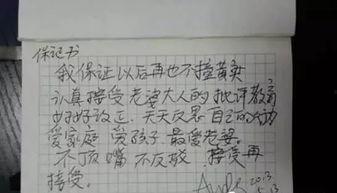 保证书
我保证以后再也不撞黄灾
认真接受老婆大人的批评教育
好好改正，天天反思自己的
爱家庭 爱孩子，最爱老婆。
不顶嘴 不反驳 接受再
接受。
2013
5.13